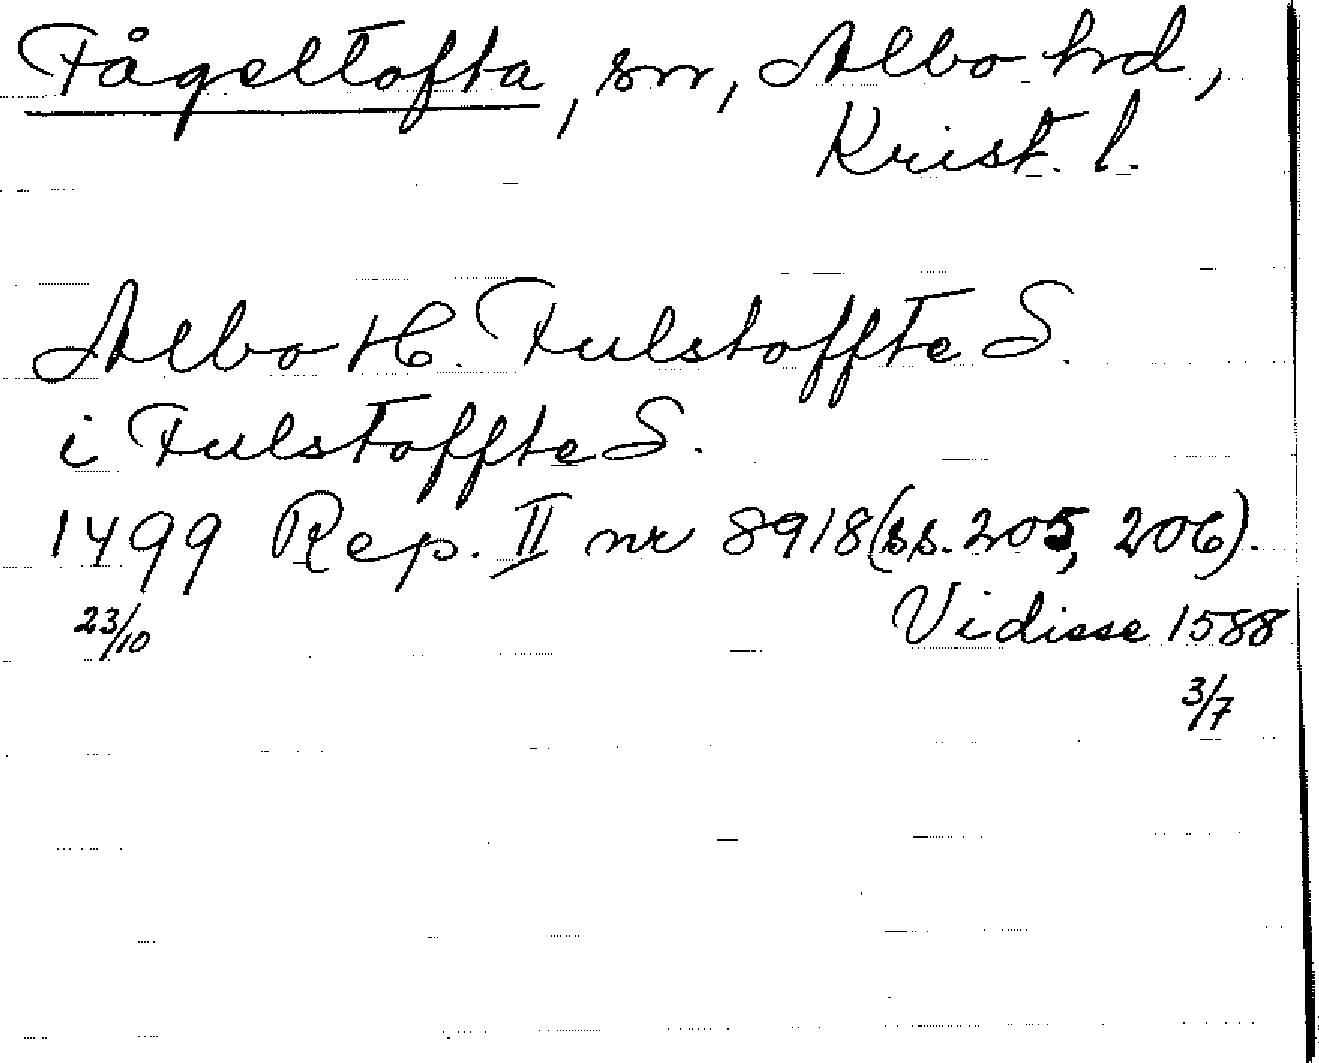 Fågeltofta, sn, Albo hd,
Krist. l.
Albo H. Fulstoffte S.
i Fulstoffte S.
1499 Rep. II nr 8918 (ss. 205, 206).
23/10 Vidisse 1588
3/7